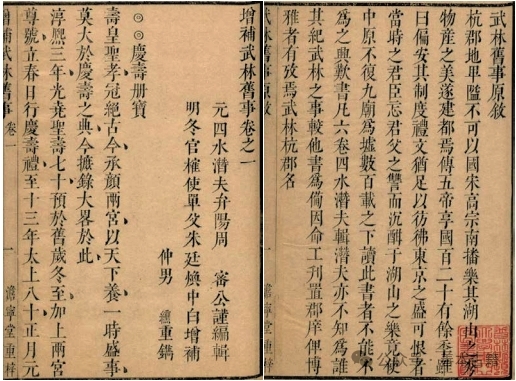 武林舊事原敘
杭郡地卑隘不可以國宋高宗南播樂其湖山之秀
物產之美遂建都焉傳五帝享國百二十有餘季雖
曰偏安其制度禮文猶足以彷彿東京之盛可恨者
當時之君臣忘君父之讐而沉酣于湖山之樂竟使
中原不復九廟為墟數百載之下讀此書者不能不
為之興歎書凡六卷四水潛夫輯潛夫亦不知為誰
其紀武林之事較他書為偹因命工刋置郡庠俾博
雅者有攷焉武林杭郡名
武林舊事 敘
一 澹寧堂重梓
增補武林舊事卷之一
元四水潛夫弁陽周 密公謹編輯
明冬官榷使單父朱廷煥中白增補
仲男 重鐫
◎◎慶壽册寶
壽皇聖孝冠絕古今承顏兩宮以天下養一時盛事
莫大於慶壽之典今摭錄大畧於此
淳熙三年光堯聖壽七十預於舊歲冬至加上兩宮
尊號立春日行慶壽禮至十三年太上八十正月元
增補武林舊事 卷一
一 澹寧堂重梓